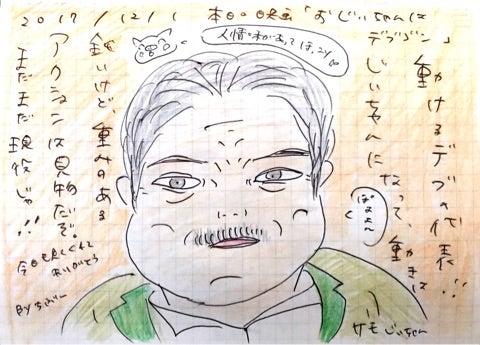 2017/12/1 本日の映画「おじいちゃんは
デブゴン」
人情味があってほっこり
動けるデブの代表!!
じいちゃんになって、動きは
鈍いけど重みのある
アクションは見物だぞ。
まだまだ現役じゃ!!
ぽよよん
今日も見てくれて
ありがとう
サモじいちゃん